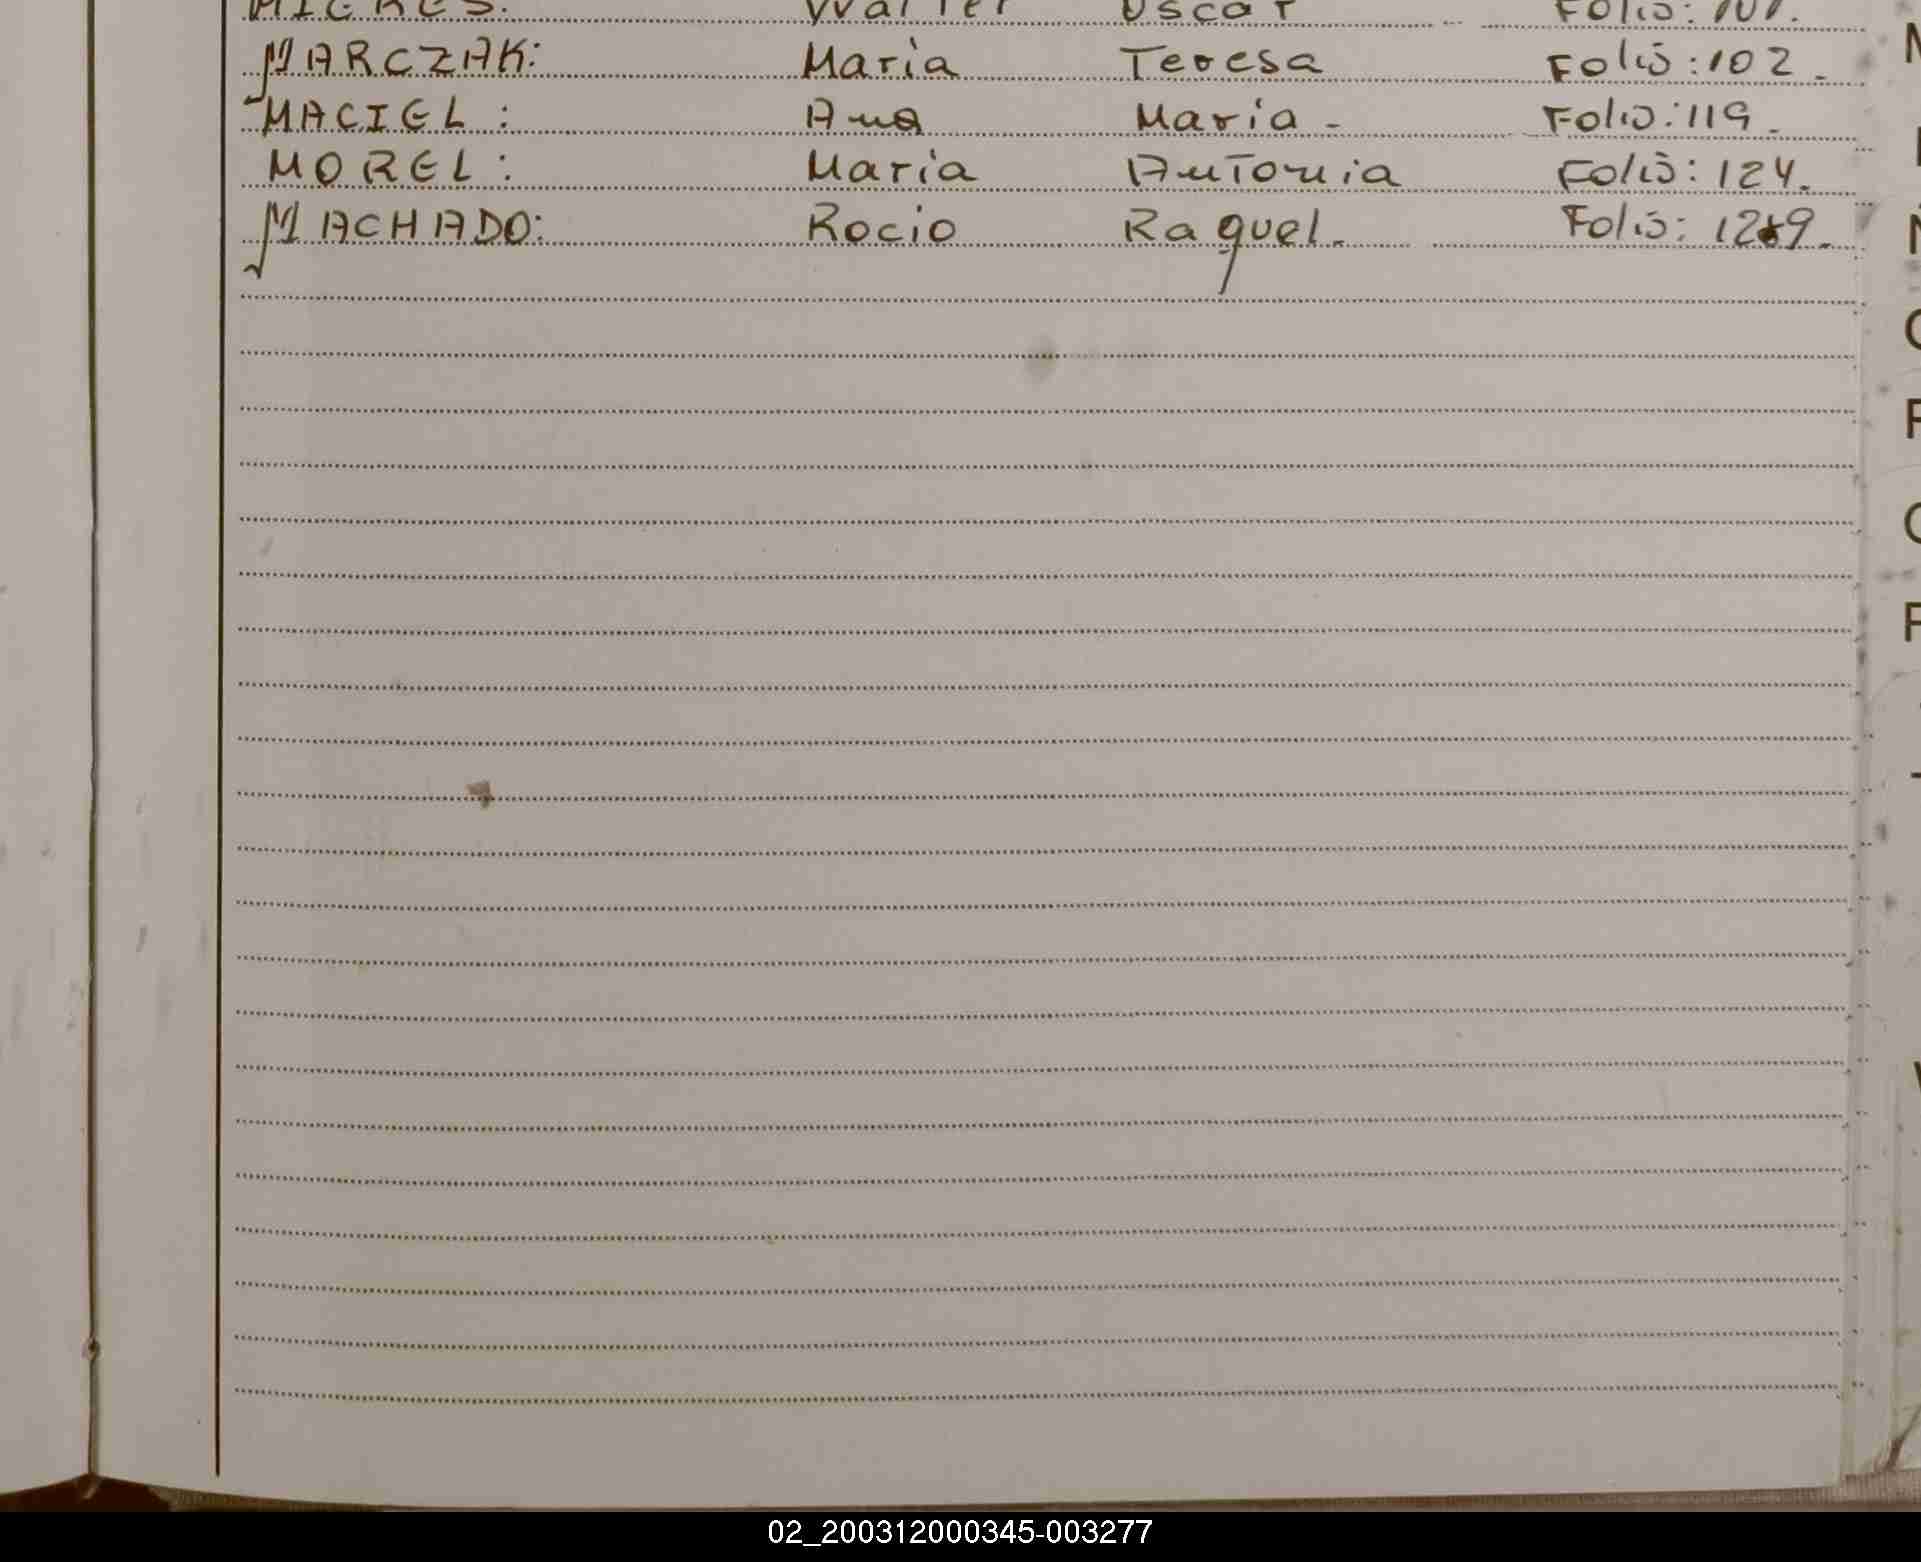 MIERES: Walter Oscar Folio: 101.
MARCZAK: Maria Teresa Folio: 102.
MACIEL: Ana Maria - Folio: 119.
MOREL: Maria Antonia Folio: 124.
MACHADO: Rocio Raquel. Folio: 129.
02_200312000345-003277